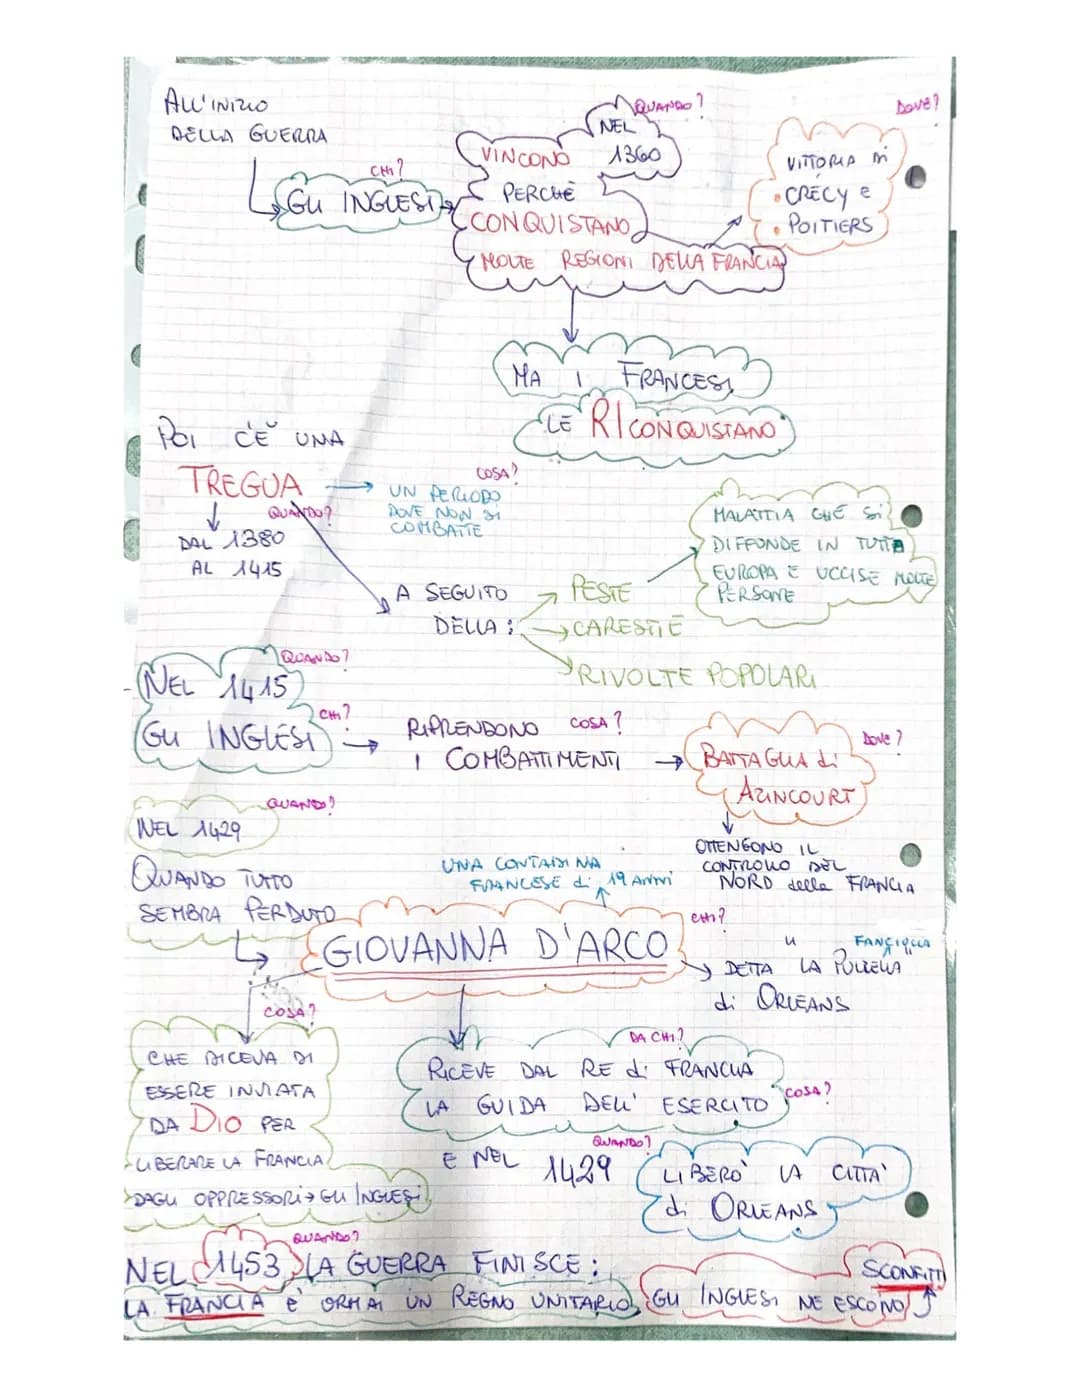 ALL'INIZIO
DELLA GUERRA
CHI?
GLI INGLESI
QUANDO?
NEL
1360
VINCONO
PERCHÈ
CONQUISTANO
MOLTE REGIONI DELLA FRANCIA
DOVE?
VITTORIA DI
• CRECY E
• POITIERS
MA I FRANCESI
LE RICONQUISTANO
POI C'È UNA
TREGUA
COSA?
UN PERIODO
DOVE NON SI
COMBATTE
QUANDO?
DAL 1380
AL 1415
A SEGUITO
DELLA:
PESTE
CARESTIE
RIVOLTE POPOLARI
MALATTIA CHE SI
DIFFONDE IN TUTTA
EUROPA E UCCISE MOLTE
PERSONE
QUANDO?
- NEL 1415
CHI?
GLI INGLESI
RIPRENDONO COSA?
I COMBATTIMENTI
DOVE?
BATTAGLIA di
AZINCOURT
OTTENGONO IL
CONTROLLO DEL
NORD della FRANCIA
QUANDO?
NEL 1429
QUANDO TUTTO
SEMBRA PERDUTO
UNA CONTADINA
FRANCESE di 19 ANNI
CHI?
GIOVANNA D'ARCO
FANCIULLA
DETTA "LA PULZELLA"
di ORLEANS
COSA?
CHE DICEVA DI
ESSERE INVIATA
DA DIO PER
LIBERARE LA FRANCIA
DAGLI OPPRESSORI → GLI INGLESI
DA CHI?
RICEVE DAL RE di FRANCIA
LA GUIDA DELL' ESERCITO COSA?
QUANDO?
E NEL 1429
LIBERÒ LA CITTÀ
di ORLEANS
QUANDO?
NEL 1453 LA GUERRA FINISCE:
LA FRANCIA È ORMAI UN REGNO UNITARIO
GLI INGLESI NE ESCONO
SCONFITTI